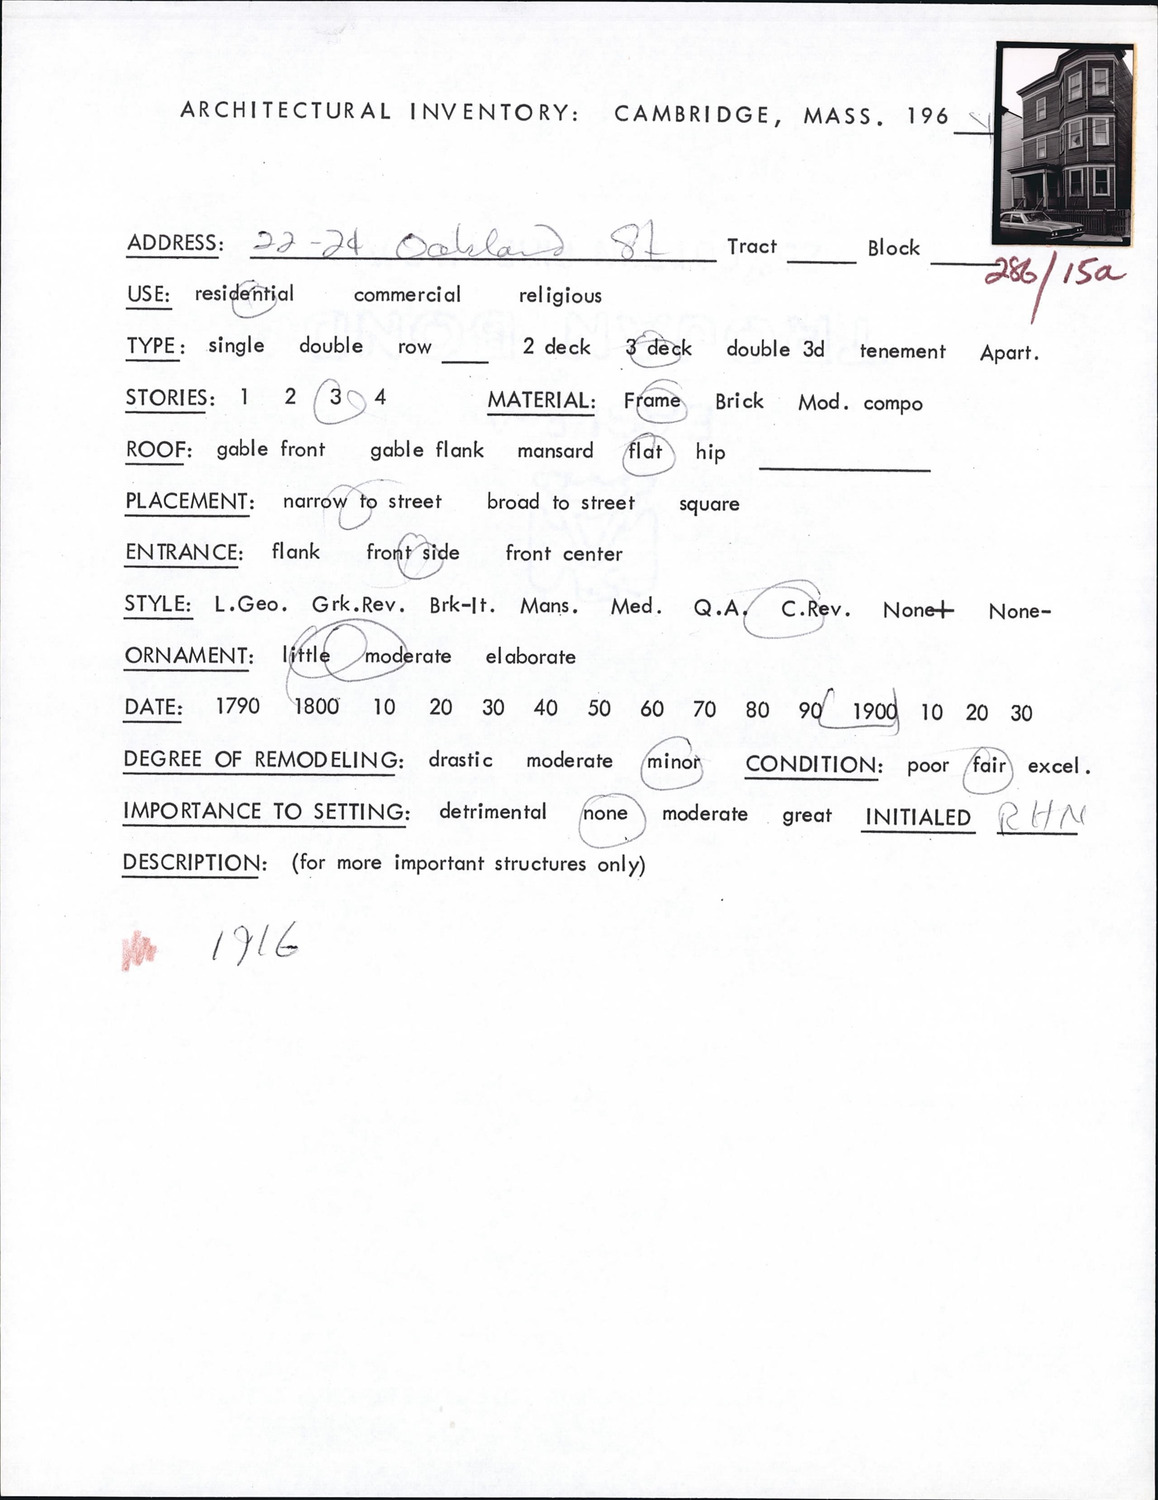 ARCHITECTURAL INVENTORY: CAMBRIDGE, MASS. 196
ADDRESS: 22-24 Oakland St Tract Block
286/15a
USE: residential commercial religious
TYPE: single double row 2 deck 3 deck double 3d tenement Apart.
STORIES: 1 2 3 4 MATERIAL: Frame Brick Mod. compo
ROOF: gable front gable flank mansard flat hip
PLACEMENT: narrow to street broad to street square
ENTRANCE: flank front side front center
STYLE: L.Geo. Grk.Rev. Brk-It. Mans. Med. Q.A. C.Rev. None+ None-
ORNAMENT: little moderate elaborate
DATE: 1790 1800 10 20 30 40 50 60 70 80 90 1900 10 20 30
DEGREE OF REMODELING: drastic moderate minor CONDITION: poor fair excel.
IMPORTANCE TO SETTING: detrimental none moderate great INITIALED RHN
DESCRIPTION: (for more important structures only)
1916